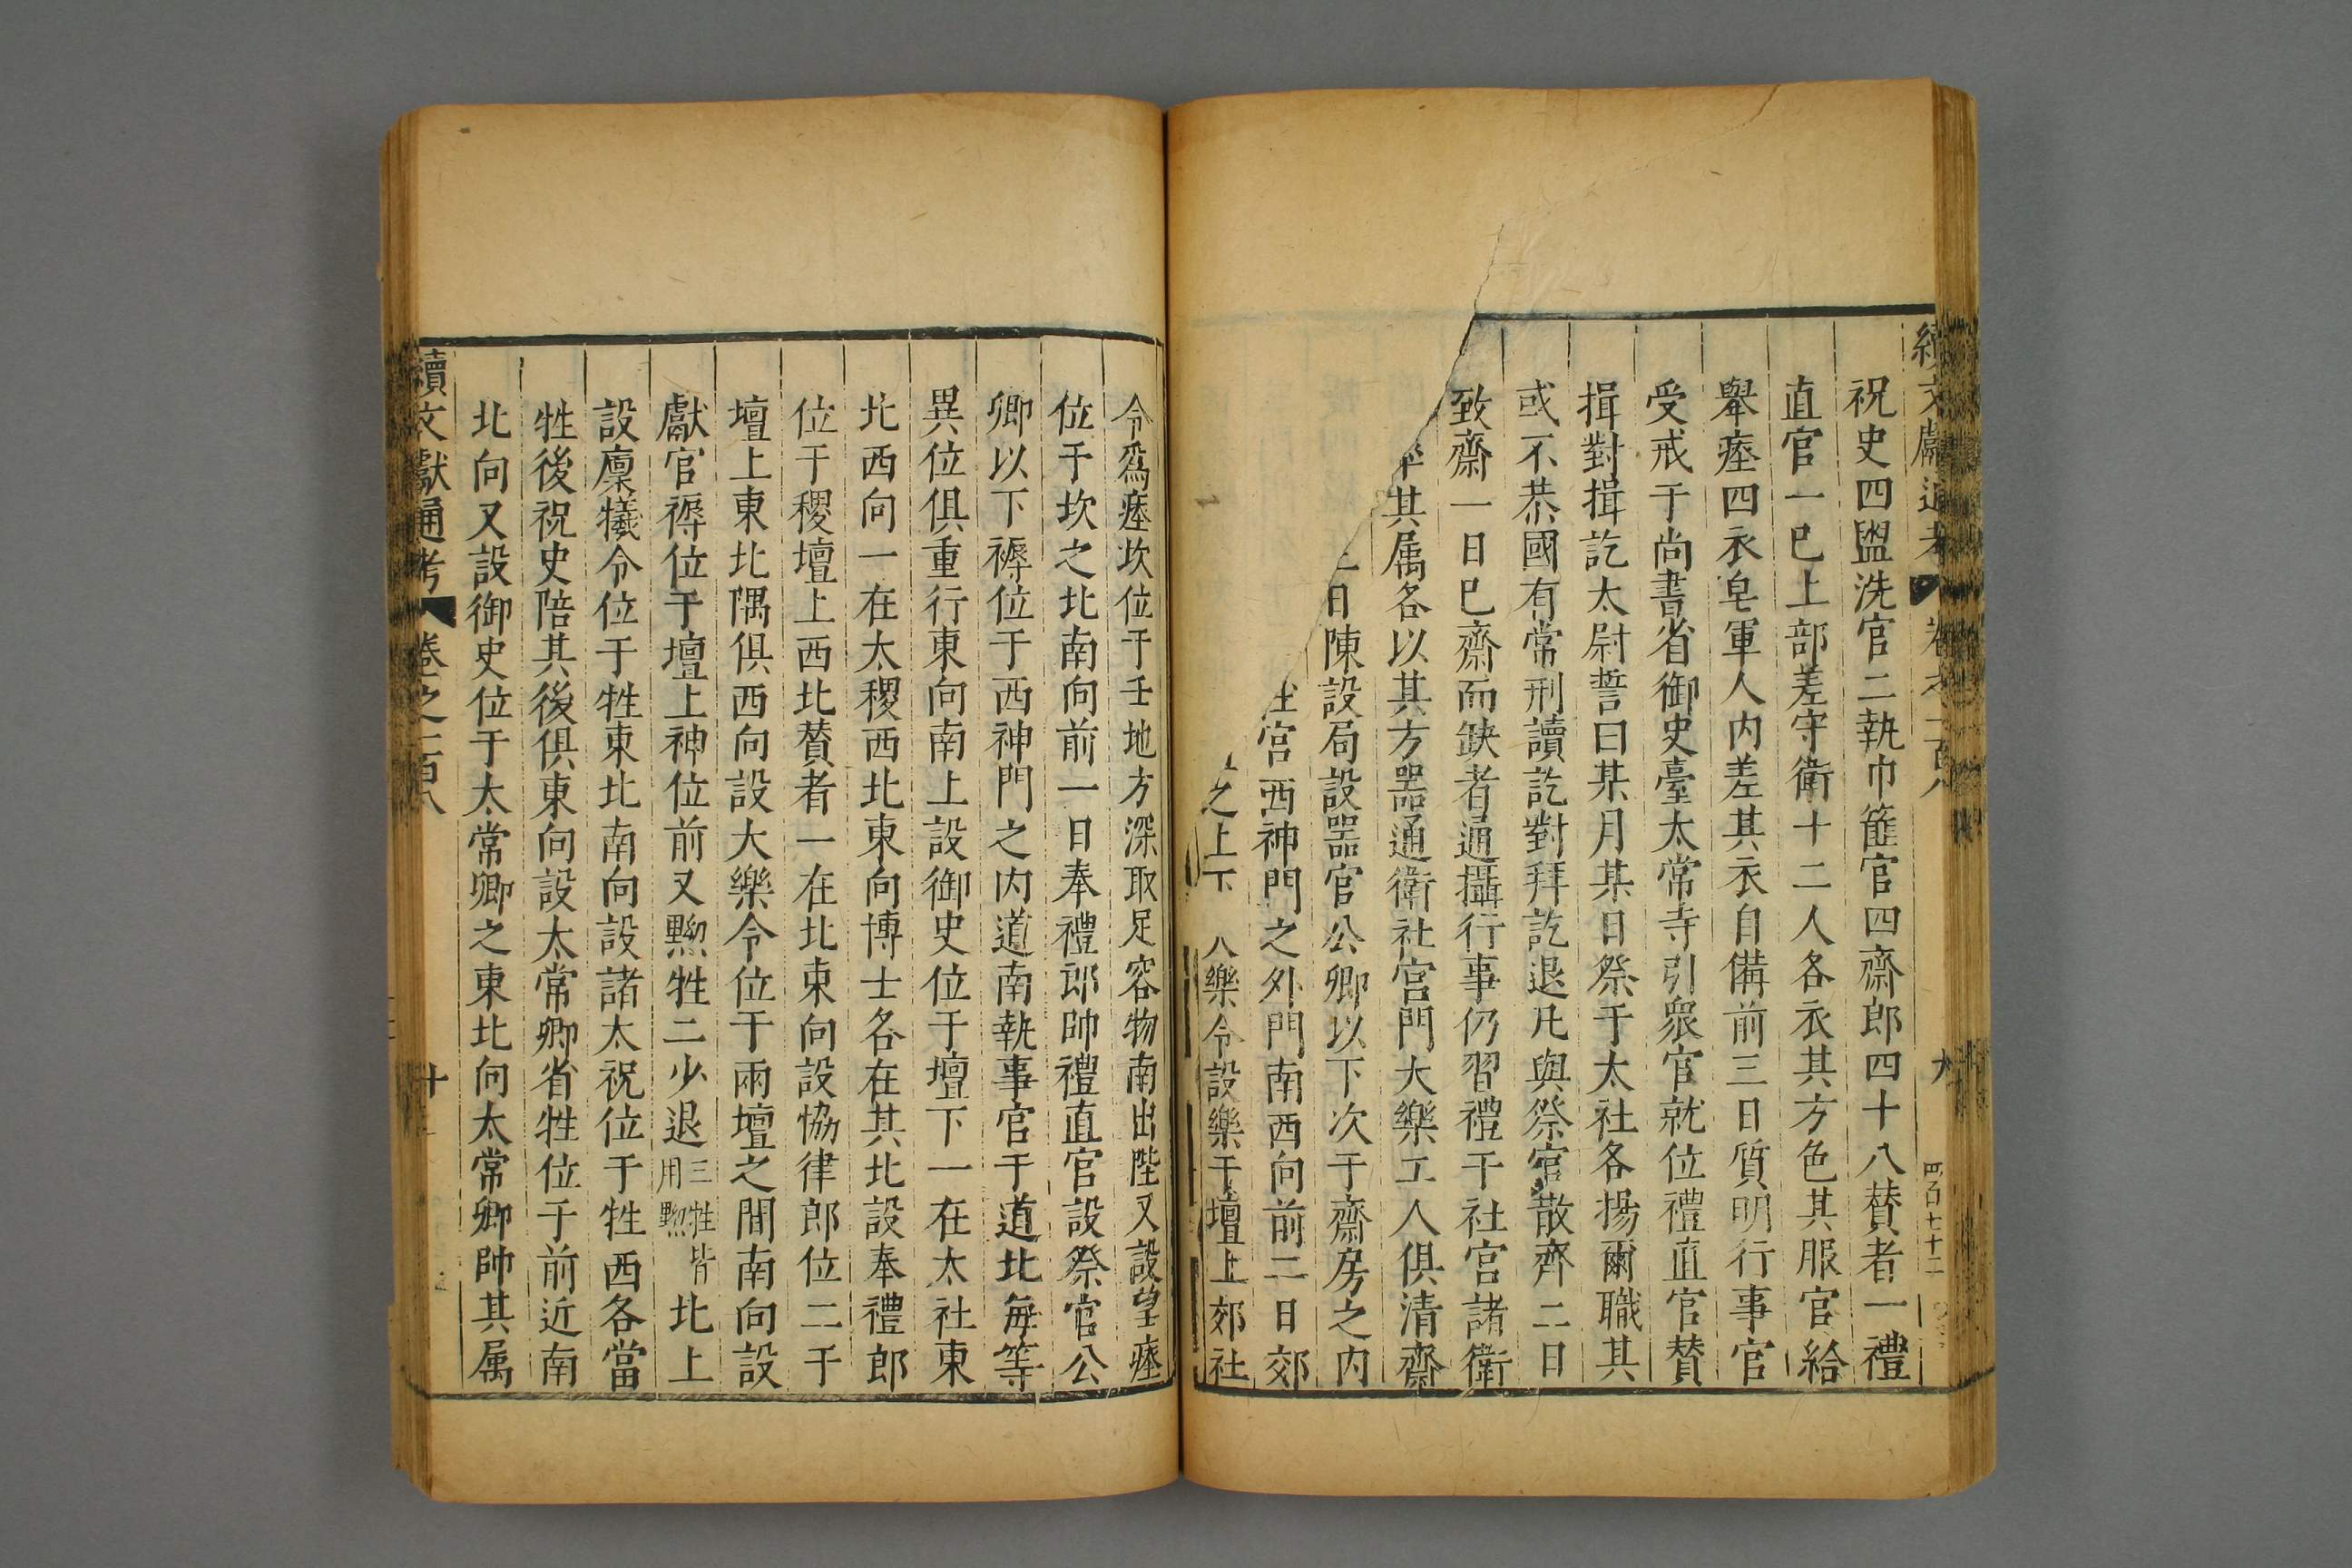 續文獻通考 卷之一百八
祝史四盥洗官二執巾篚官四齋郎四十八賛者一禮
直官一已上部差守衛十二人各衣其方色其服官給
舉瘞四衣皂軍人内差其衣自備前三日質明行事官
受戒于尚書省御史臺太常寺引衆官就位禮直官賛
揖對揖訖太尉誓曰某月某日祭于太社各揚爾職其
或不恭國有常刑讀訖對拜訖退凡與祭官散齊二日
致齋一日已齋而缺者通攝行事仍習禮于社宫諸衛
其属各以其方噐通衛社宫門大樂工人俱清齋
日陳設局設噐官公卿以下次于齋房之内
宫西神門之外門南西向前二日郊
之上下 八樂令設樂于壇上郊社
令爲瘞坎位于壬地方深取足容物南出陛又設望瘞
位于坎之北南向前一日奉禮郎帥禮直官設祭官公
卿以下褥位于西神門之内道南執事官于道北每等
異位俱重行東向南上設御史位于壇下一在太社東
北西向一在太稷西北東向博士各在其北設奉禮郎
位于稷壇上西北賛者一在北東向設協律郎位二于
壇上東北隅俱西向設大樂令位于兩壇之間南向設
獻官褥位于壇上神位前又黝牲二少退三牲皆用黝北上
設廪犧令位于牲東北南向設諸太祝位于牲西各當
牲後祝史陪其後俱東向設太常卿省牲位于前近南
北向又設御史位于太常卿之東北向太常卿帥其属
續文獻通考 卷之一百八 十